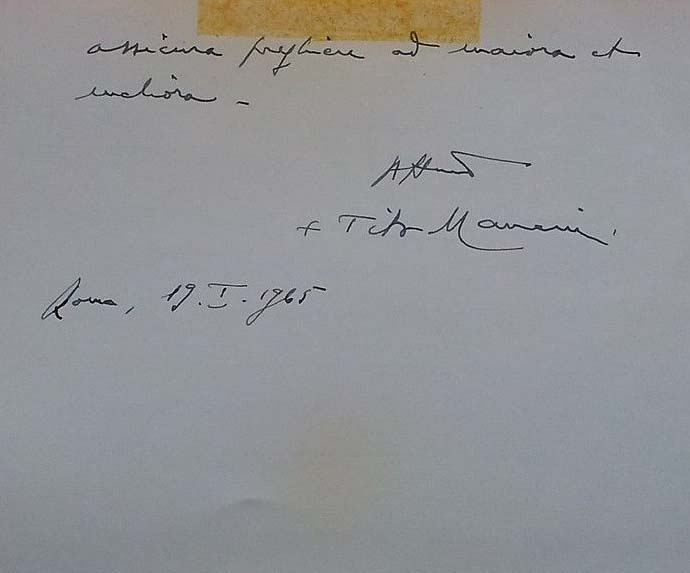 assicura preghiere ad maiora et
meliora -
+ Tito Mancini.
Roma, 19.I.1965